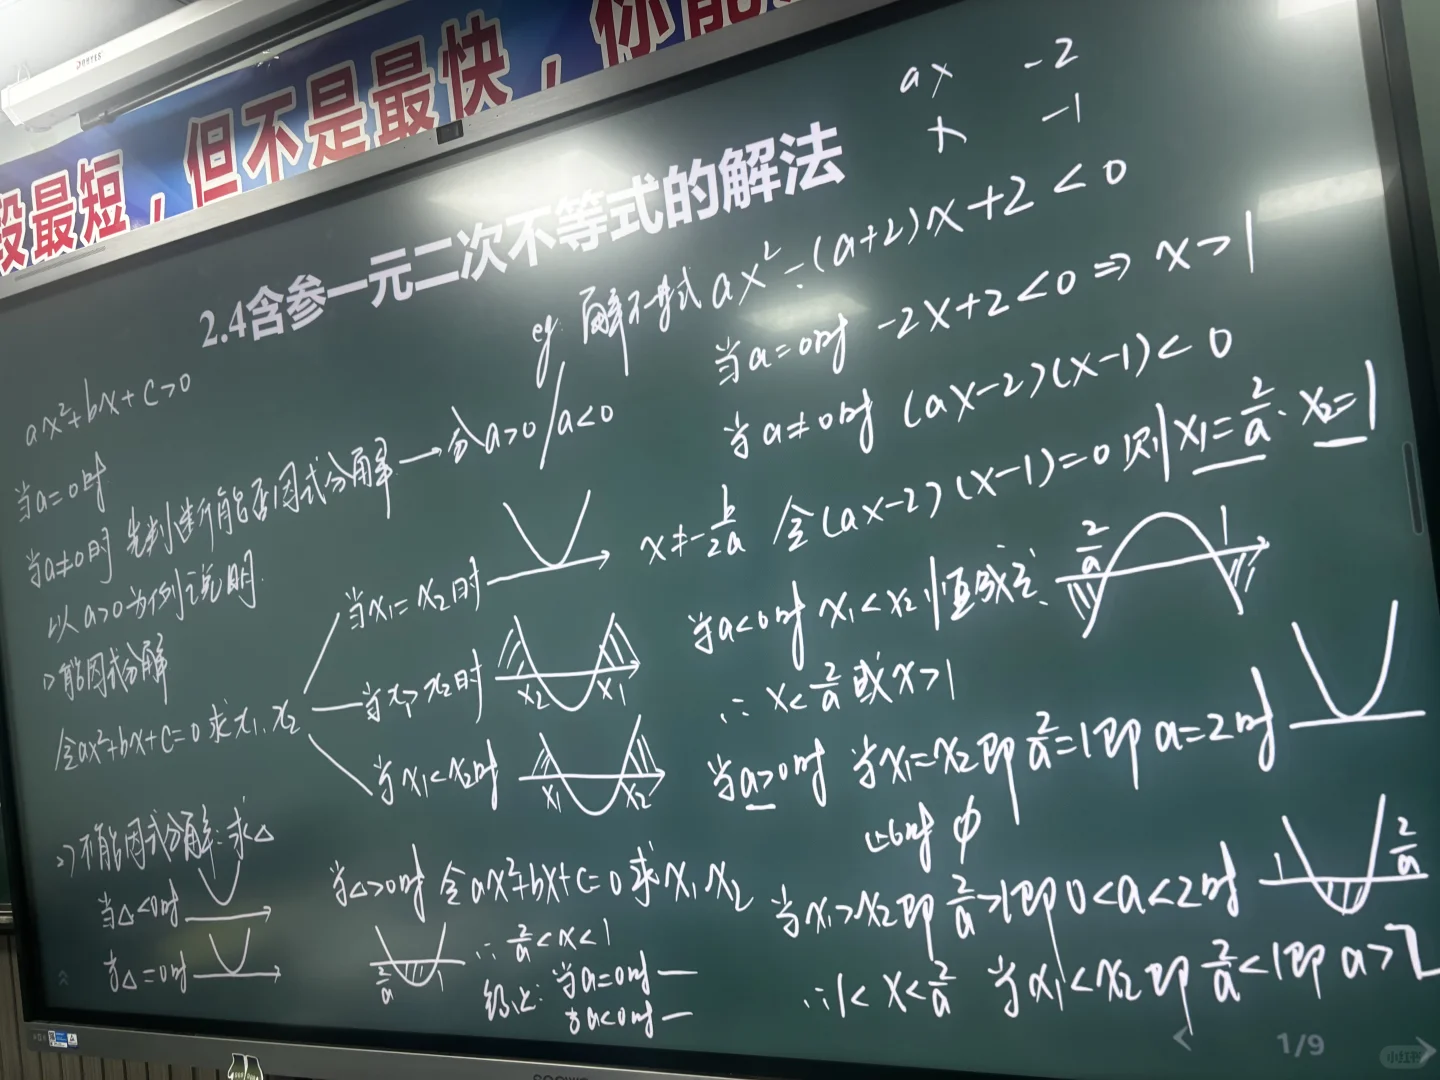 段最短，但不是最快，你能
2.4含参一元二次不等式的解法
ax²+bx+c>0
当a=0时
当a≠0时 先判断能否因式分解→分a>0/a<0
以a>0为例说明.
1)能因式分解
令ax²+bx+c=0求x₁,x₂
当x₁=x₂时
x≠-b/2a
当x₁>x₂时
x₂ x₁
当x₁<x₂时
x₁ x₂
2)不能因式分解:求△
当△<0时
当△=0时
当△>0时 令ax²+bx+c=0求x₁,x₂
ax -2
x -1
eg: 解不等式ax²-(a+2)x+2<0
当a=0时 -2x+2<0⇒x>1
当a≠0时 (ax-2)(x-1)<0
令(ax-2)(x-1)=0则x₁=2/a. x₂=1
当a<0时 x₁<x₂恒成立.
2/a 1
∴x<2/a或x>1
当a>0时 当x₁=x₂即2/a=1即a=2时
此时φ
当x₁>x₂即2/a>1即0<a<2时
1 2/a
∴1<x<2/a 当x₁<x₂即2/a<1即a>2
2/a 1
∴2/a<x<1
综上: 当a=0时—
当a<0时—
1/9
小红书